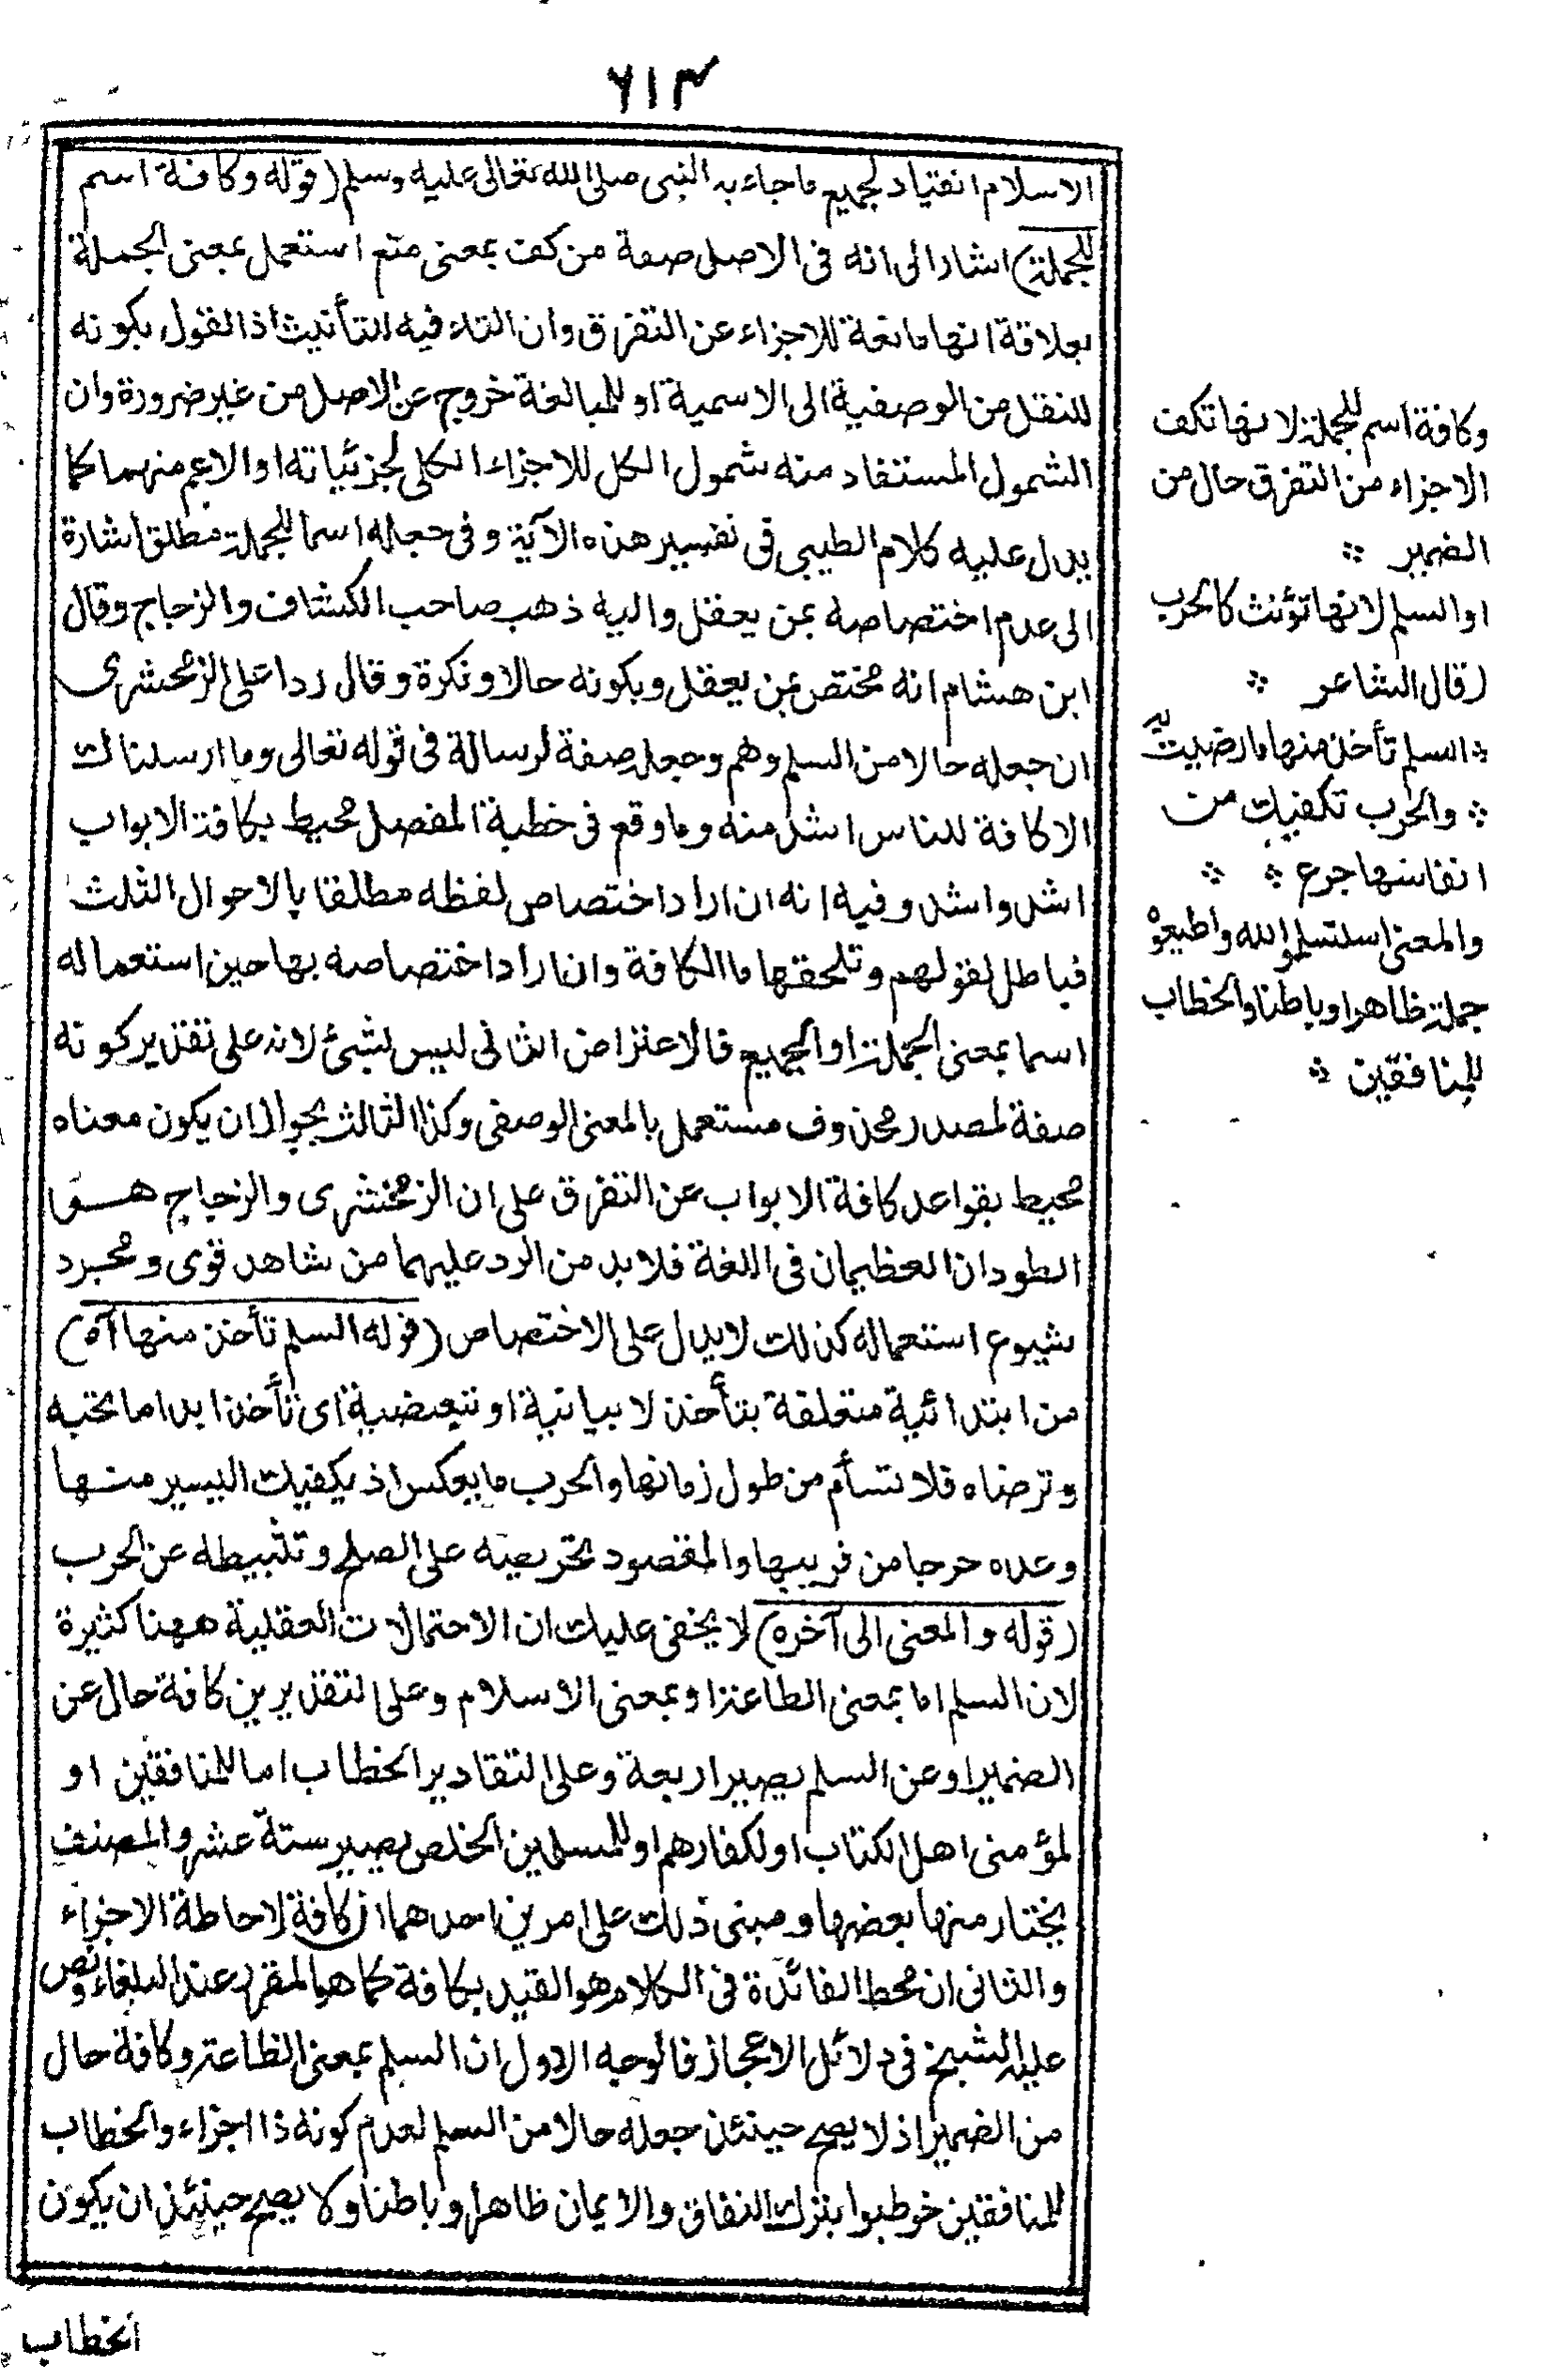 ٦١٣
الاسلام انقياد لجميع ما جاء به النبى صلى الله تعالى عليه وسلم (قوله وكافة اسم
للجملة) اشار الى انه فى الاصل صفة من كف بمعنى منع استعمل بمعنى الجملة
بعلاقة انها مانعة للاجزاء عن التفرق وان التاء فيه للتأنيث اذ القول بكونه
للنقل من الوصفية الى الاسمية او للمبالغة خروج عن الاصل من غير ضرورة وان
الشمول المستفاد منه شمول الكل للاجزاء الكلى لجزئياته او الاعم منهما كما
يدل عليه كلام الطيبى فى تفسير هذه الآية وفى جعله اسما للجملة مطلق اشارة
الى عدم اختصاصه بمن يعقل واليه ذهب صاحب الكشاف والزجاج وقال
ابن هشام انه مختص بمن يعقل وبكونه حالا ونكرة وقال ردا على الزمخشرى
ان جعله حالا من السلم وهم وجعله صفة لرسالة فى قوله تعالى وما ارسلناك
الا كافة للناس اشد منه وما وقع فى خطبة المفصل محيط بكافة الابواب
اشد واشد وفيه انه ان اراد اختصاص لفظه مطلقا بالاحوال الثلث
فباطل لقولهم وتلحقها ما الكافة وان اراد اختصاصه بها حين استعماله
اسما بمعنى الجملة او الجميع فالاعتراض الثانى ليس بشئ لانه على تقدير كونه
صفة لمصدر محذوف مستعمل بالمعنى الوصفى وكذا الثالث بجواز ان يكون معناه
محيط بقواعد كافة الابواب عن التفرق على ان الزمخشرى والزجاج هما
الطودان العظيمان فى اللغة فلا بد من الرد عليهما من شاهد قوى ومجرد
شيوع استعماله كذلك لا يدل على الاختصاص (قوله السلم تأخذ منها آه)
من ابتدائية متعلقة بتأخذ لا بيانية او تبعيضية اى تأخذ ابدا ما تحبه
وترضاه فلا تسأم من طول زمانها والحرب ما بعكس اذ يكفيك اليسير منها
وعده حرجا من قريبها والمقصود تحريضه على الصلح وتثبيطه عن الحرب
(قوله والمعنى الى آخره) لا يخفى عليك ان الاحتمالات العقلية ههنا كثيرة
لان السلم اما بمعنى الطاعة او بمعنى الاسلام وعلى التقديرين كافة حال عن
الضمير او عن السلم يصير اربعة وعلى التقادير الخطاب اما للمنافقين او
لمؤمنى اهل الكتاب او لكفارهم او للمسلمين الخلص يصير ستة عشر والمصنف
يختار منها بعضها ومبنى ذلك على امرين احدهما ان كافة لاحاطة الاجزاء
والثانى ان محط الفائدة فى الكلام هو القيد بكافة كما هو المقرر عند البلغاء ونص
عليه الشيخ فى دلائل الاعجاز فالوجه الاول ان السلم بمعنى الطاعة وكافة حال
من الضمير اذ لا يصح حينئذ جعله حالا من السلم لعدم كونه ذا اجزاء والخطاب
للمنافقين خوطبوا بترك النفاق والايمان ظاهرا وباطنا ولا يصح حينئذ ان يكون
الخطاب
وكافة اسم للجملة لانها تكف
الاجزاء من التفرق حال من
الضمير ؞
او السلم لانها تؤنث كالحرب
(قال الشاعر ؞
؞ السلم تأخذ منها ما رضيت به
؞ والحرب تكفيك من
انفاسها جرع ؞ ؞
والمعنى استسلموا لله واطيعوه
جملة ظاهرا وباطنا والخطاب
للمنافقين ؞